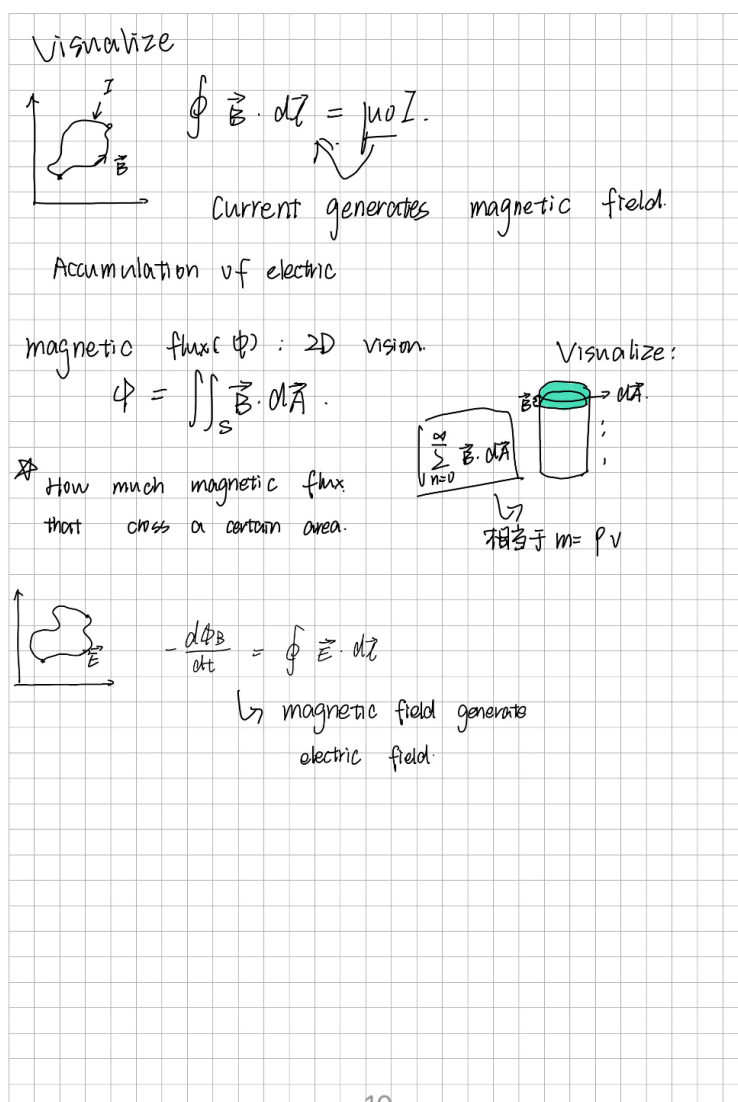 Visualize
I
∮ B⃗ · dl⃗ = μ0 I.
B⃗
Current generates magnetic field.
Accumulation of electric
magnetic flux(ϕ) : 2D vision.
Φ = ∬S B⃗ · dA⃗ .
Visualize:
B⃗ dA⃗.
∞
∑ B⃗ · dA⃗
n=0
☆ How much magnetic flux
that cross a certain area.
相当于 m= ρv
E⃗
- dΦB/dt = ∮ E⃗ · dl⃗
↳ magnetic field generate
electric field.
10